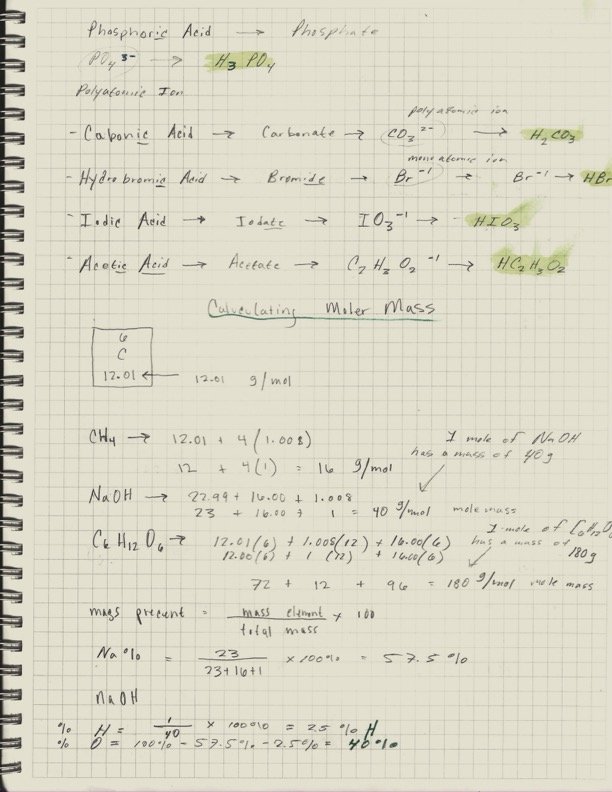 Phosphoric Acid → Phosphate
PO₄ ³⁻ → H₃ PO₄
Polyatomic Ion
polyatomic ion
- Cabonic Acid → Carbonate → CO₃²⁻ → H₂CO₃
monoatomic ion
- Hydrobromic Acid → Bromide → Br⁻¹ → Br⁻¹ → HBr
- Iodic Acid → Iodate → IO₃⁻¹ → HIO₃
- Acetic Acid → Acetate → C₂H₃O₂⁻¹ → HC₂H₃O₂
Calculating Moler Mass
6
C
12.01 ← 12.01 g/mol
1 mole of NaOH
has a mass of 40g
CH₄ → 12.01 + 4(1.008)
12 + 4(1) = 16 g/mol
NaOH → 22.99 + 16.00 + 1.008
23 + 16.00 + 1 = 40 g/mol mole mass
1 mole of C₆H₁₂O₆
has a mass of
180g
C₆H₁₂O₆ → 12.01(6) + 1.008(12) + 16.00(6)
12.00(6) + 1(12) + 16.00(6)
72 + 12 + 96 = 180 g/mol mole mass
mass present = mass element / total mass × 100
Na% = 23 / 23+16+1 ×100% = 57.5%
NaOH
% H = 1/40 × 100% = 2.5% H
% O = 100% - 57.5% - 2.5% = 40%